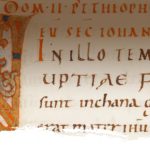 DOM·II·P·THEOPH
EU SEC IOHAN
IN ILLO TEM
UPTIAE F
sunt inchana g
erat mater ihu